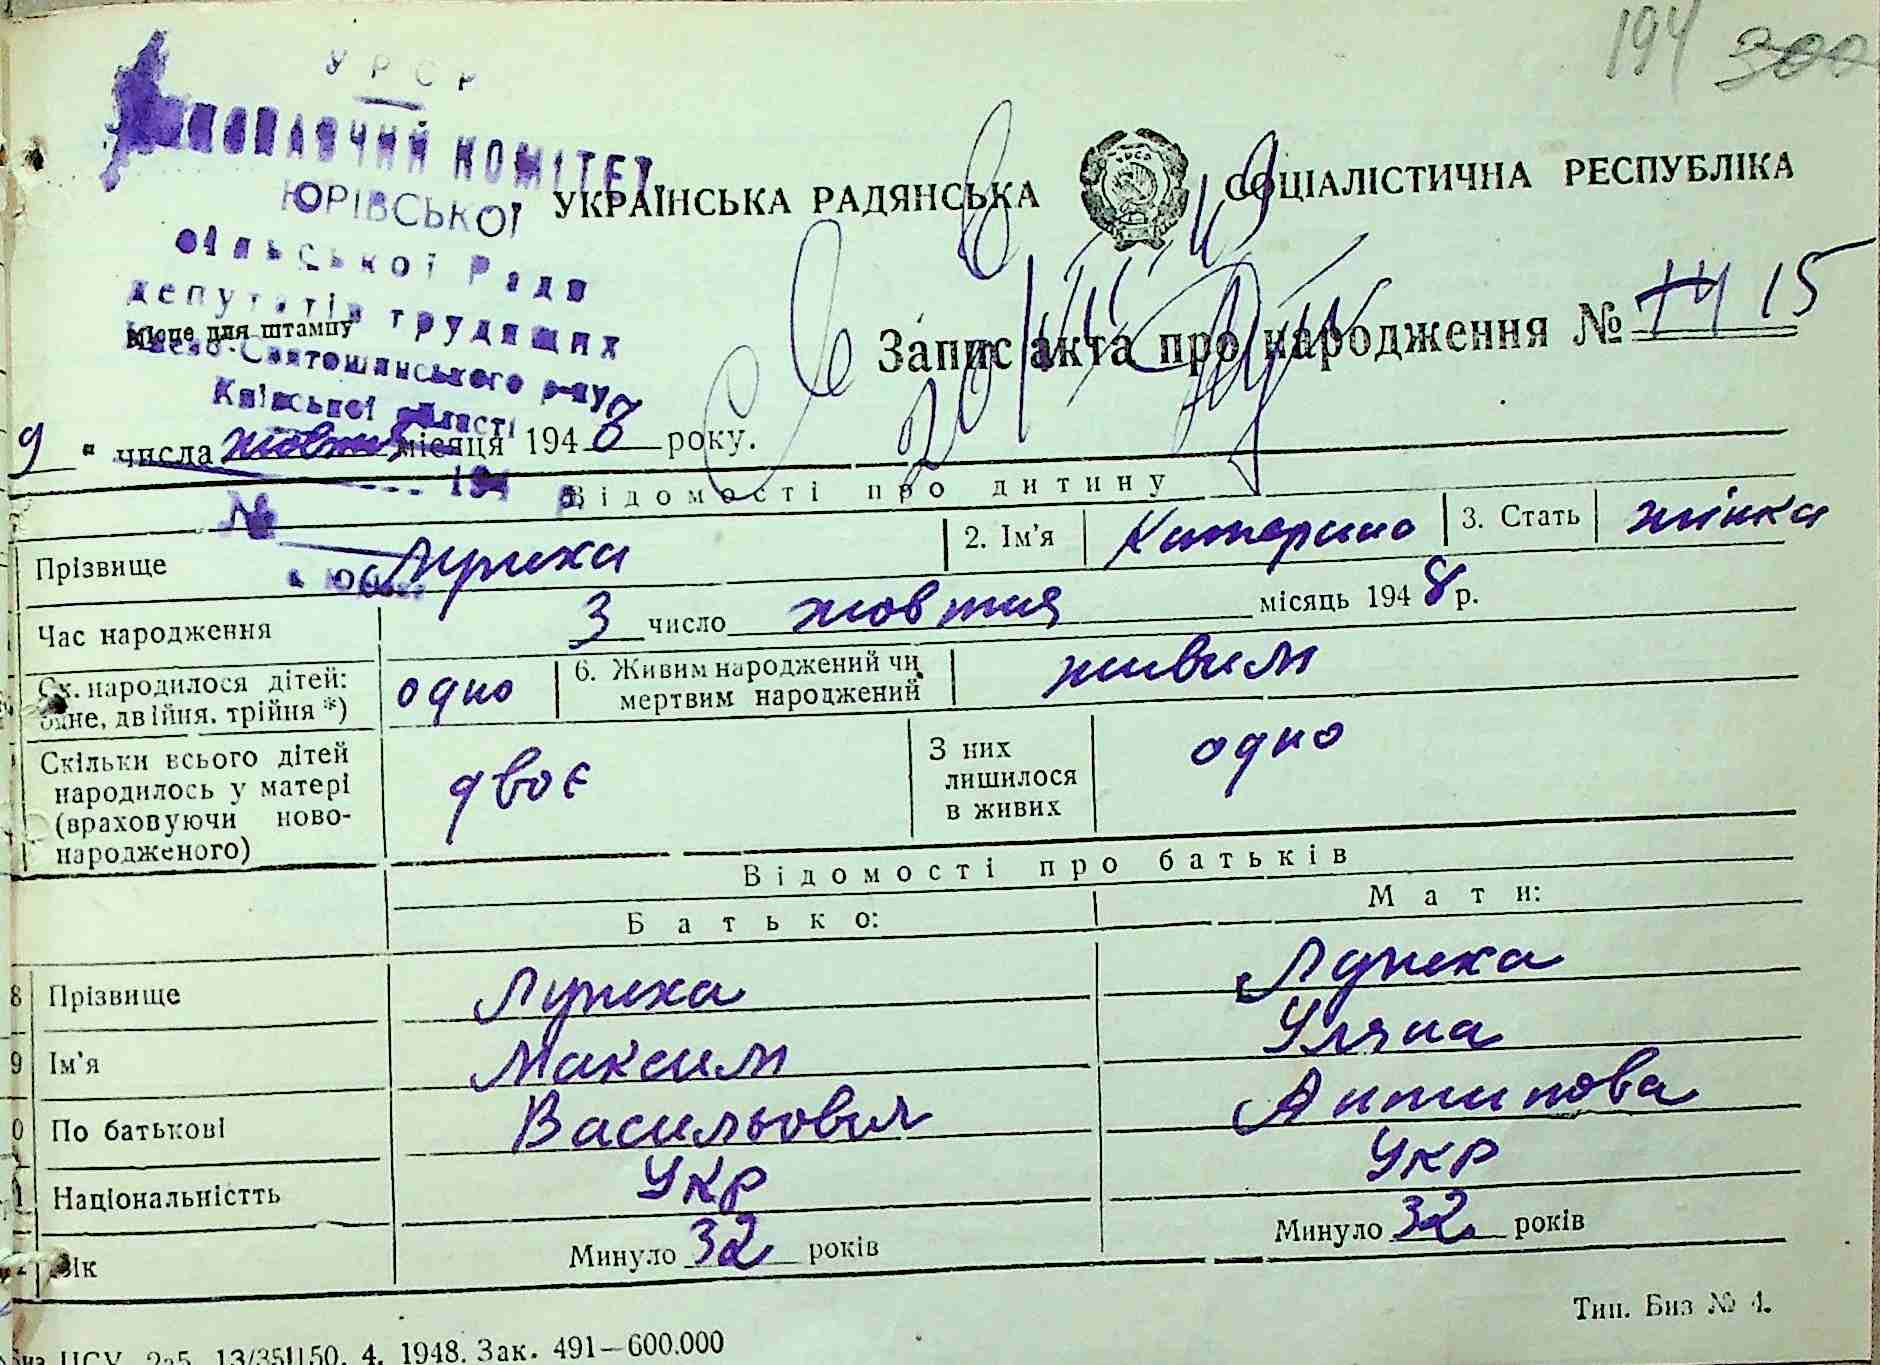 194 300
УРСР
ВИКОНАВЧИЙ КОМІТЕТ
ЮРІВСЬКОЇ
сільської Ради
депутатів трудящих
Києво-Святошинського р-ну
Київської області
194 р.
№
УКРАЇНСЬКА РАДЯНСЬКА СОЦІАЛІСТИЧНА РЕСПУБЛІКА
Місце для штампу
Запис акта про народження № 14 15
9 " числа жовтня місяця 1948 року.
Відомості про дитину
Прізвище Лужха 2. Ім'я Катерина 3. Стать жінка
Час народження 3 число жовтня місяць 1948 р.
Ск. народилося дітей: одне, двійня, трійня *) одно 6. Живим народжений чи мертвим народжений живим
Скільки всього дітей народилось у матері (враховуючи новонародженого) двоє З них лишилося в живих одно
Відомості про батьків
Батько: Мати:
8 Прізвище Лужха Лужха
9 Ім'я Максим Уляна
0 По батькові Васильович Антипова
1 Національністть УКР УКР
Вік Минуло 32 років Минуло 32 років
Тип. Биз № 4.
ЦСУ 13/351 50. 4. 1948. Зак. 491—600.000